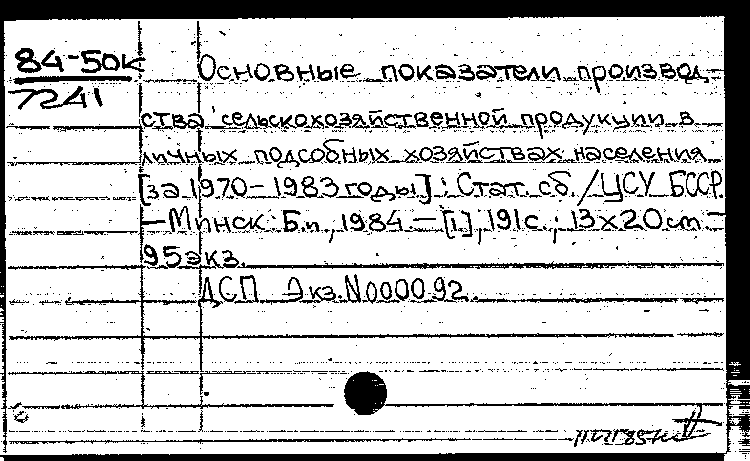 84-50к
7241
Основные показатели производ-
ства сельскохозяйственной продукции в
личных подсобных хозяйствах населения
[за 1970-1983 годы] : Стат. сб. / ЦСУ БССР.
— Минск : Б.и., 1984. — [1], 191с. ; 13х20см —
95экз.
ДСП Экз.N000092.